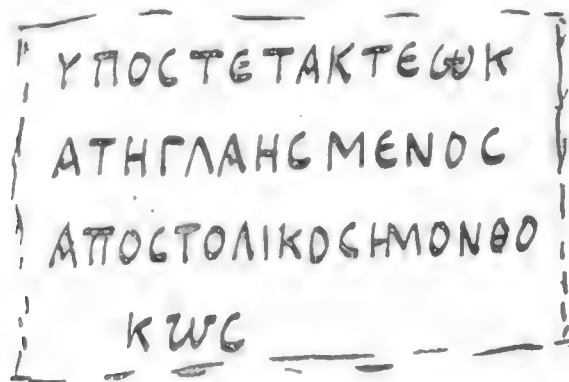 ΥΠΟϹΤΕΤΑΚΤΕΩΚ
ΑΤΗΓΛΑΗϹΜΕΝΟϹ
ΑΠΟϹΤΟΛΙΚΟϹΗΜΟΝΘΟ
ΚΩϹ